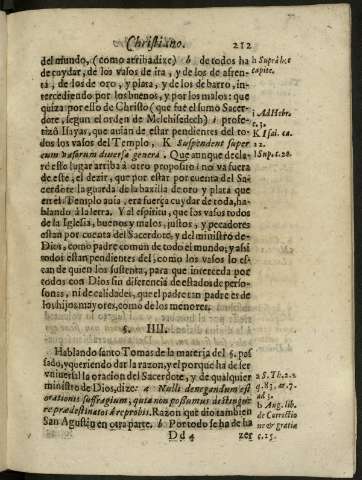 Christiano. 212
del mundo, (como arriba dixe) b de todos ha
de cuydar, de los vasos de ira, y de los de afren-
ta, de los de oro, y plata, y de los de barro, in-
tercediendo por los buenos, y por los malos: que
quiza por esso de Christo (que fue el sumo Sacer-
dote, segun el orden de Melchisedech) i profe-
tizó Isayas, que auian de estar pendientes del to-
dos los vasos del Templo, K Suspendent super
eum vasorum diuersa genera. Que aunque decla-
ré este lugar arriba a otro proposito l no va fuera
de este, el dezir, que por estar por cuenta del Sa-
cerdote la guarda de la baxilla de oro y plata que
en el Templo auia, era fuerça cuydar de toda, ha-
blando á la letra. Y al espiritu, que los vasos todos
de la Iglesia, buenos y malos, justos, y pecadores
estan por cuenta del Sacerdote, y del ministro de
Dios, como padre comun de todo el mundo; y assi
todos estan pendientes del, como los vasos lo es-
can de quien los sustenta, para que interceda por
todos con Dios sin diferencia de estados de perso-
sonas, ni de calidades, que el padre tan padre es de
los hijos mayores, como de los menores.
§. IIII.
Hablando santo Tomas de la materia del §. pas-
sado, y queriendo dar la razon, y el porque ha de ser
vniuersal la oracion del Sacerdote, y de qualquier
ministro de Dios, dize: a Nulli denegandum est
orationis suffragium, quia non possumus distinguere
prædestinatos à reprobis. Razon que dio tambien
San Agustin en otra parte. b Por todo se ha de ha
Dd 4 zer
h Suprà hoc
capite.
i Ad Hebr.
c. 5.
K Isai. ca.
22.
l Sup. c. 28.
a S. Th. 2. 2
q. 83. ar. 7.
ad 3.
b Aug. lib.
de Correctio
ne & gratia
c. 15.